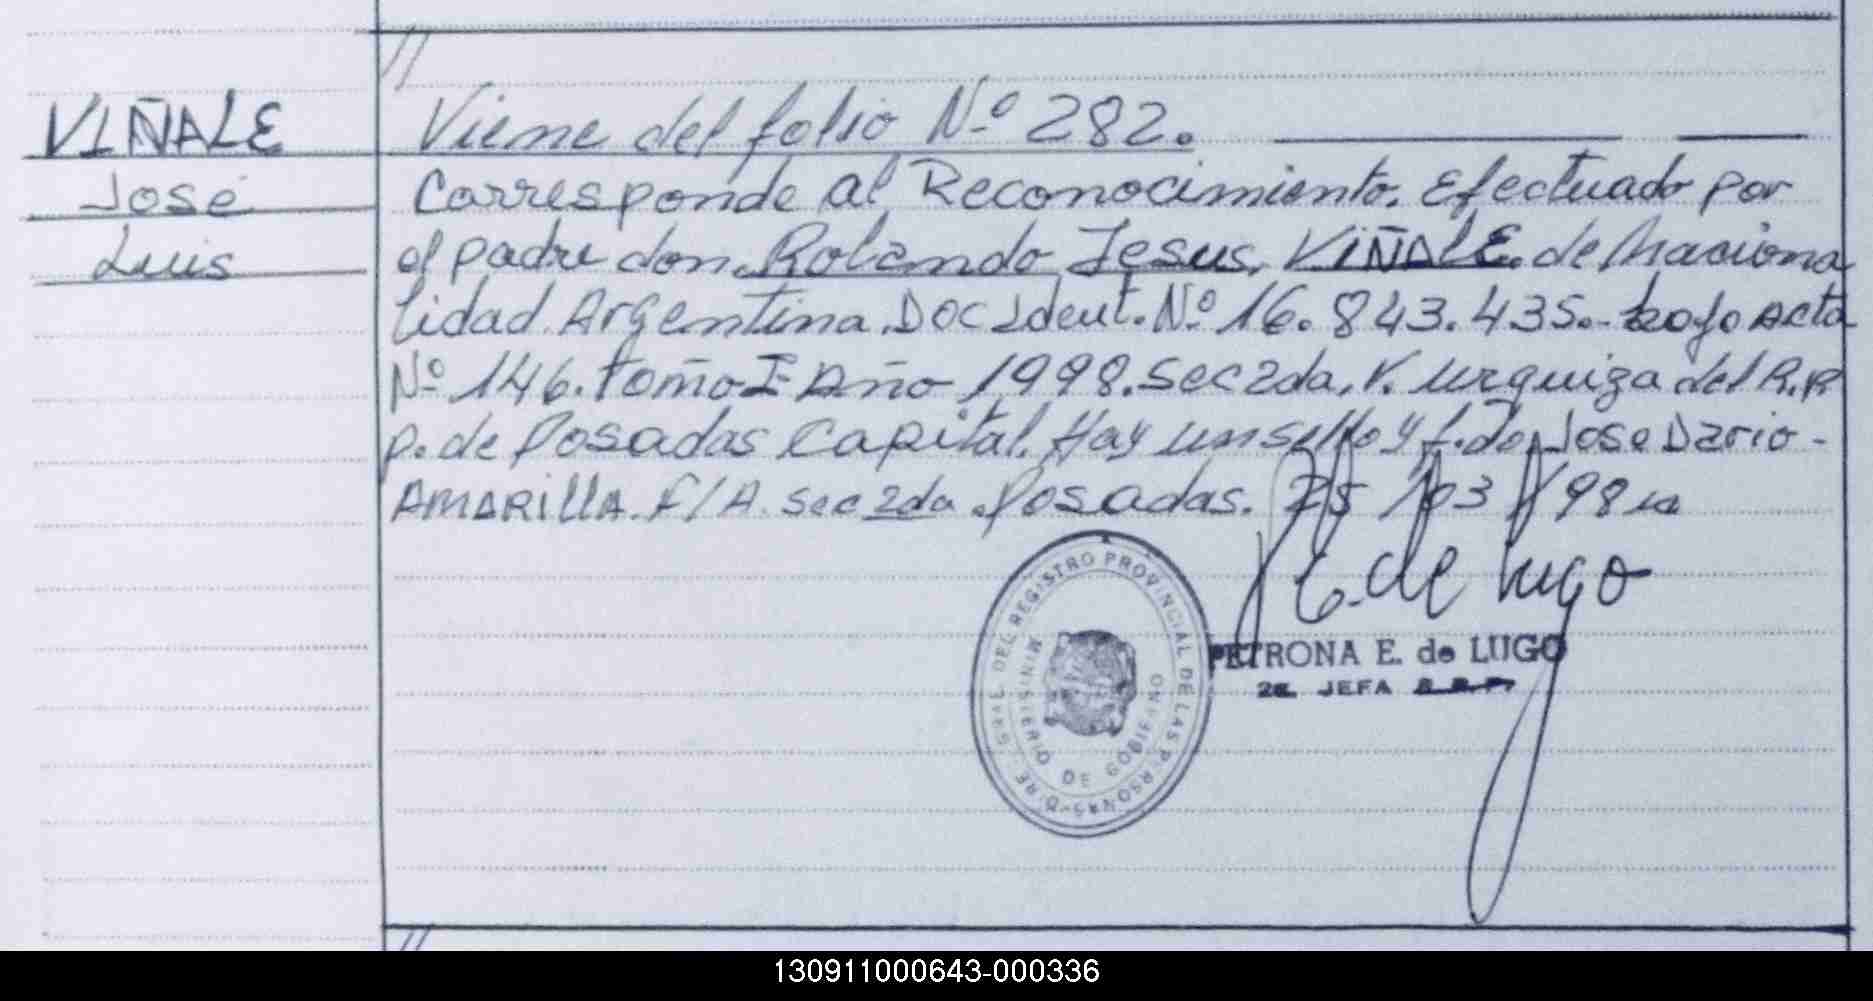 //
VIÑALE
José
Luis
Viene del folio Nº 282.
Corresponde al Reconocimiento. Efectuado por
el padre don. Rolando Jesus. VIÑALE. de Naciona
lidad. Argentina. DOC Ident. Nº 16.843.435.- bajo Acta
Nº 146. tomo I Año 1998. sec 2da, V. Urquiza del R.P.
p. de Posadas Capital. Hay un sello y f.do. Jose Dario -
AMARILLA. F/A. sec 2da. Posadas. 25/03/98
E. de Lugo
PETRONA E. de LUGO
2a. JEFA
DIRE. GRAL. DEL REGISTRO PROVINCIAL DE LAS PERSONAS
MINISTERIO DE GOBIERNO
//
130911000643-000336